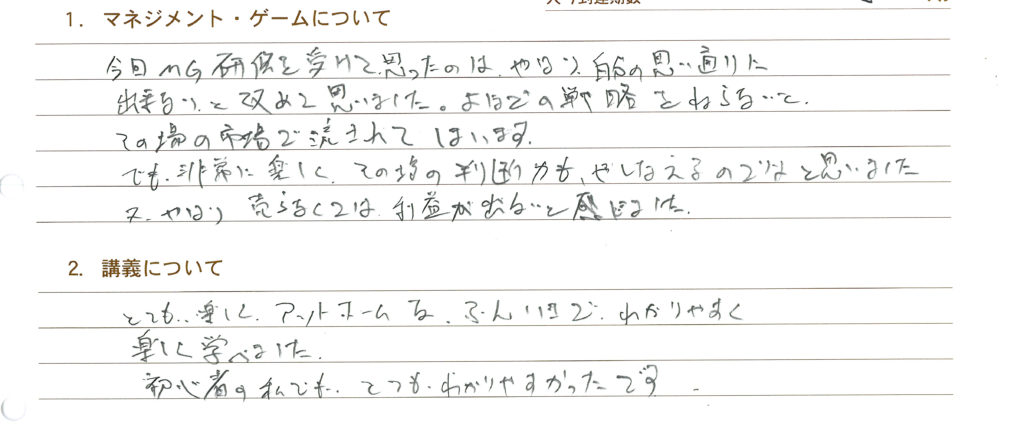 1. マネジメント・ゲームについて
今回MG研修を受けて思ったのは、やはり、自分の思い通りに
出来ないと改めて思いました。よほどの戦略をねらないと、
その場の市場で流されてしまいます。
でも、非常に楽しく、その場の判断力も、やしなえるのでは と思いました
又、やはり 売らなくては、利益が出ないと感じました。
2. 講義について
とても、楽しく、アットホームな、ふんいきで、わかりやすく
楽しく学べました。
初心者の私でも、とても、わかりやすかったです。